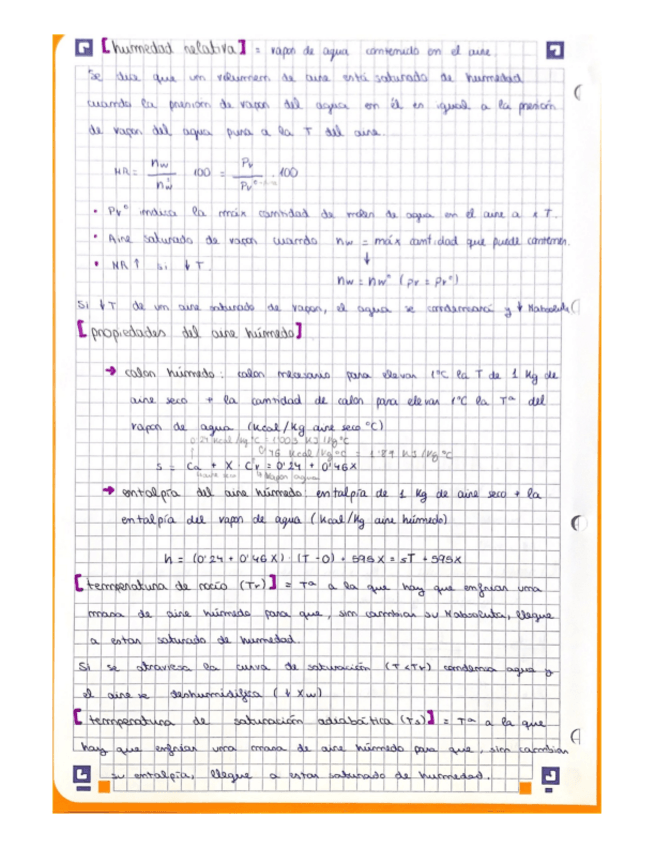 [humedad relativa] = vapor de agua contenido en el aire.
Se dice que un volumen de aire está saturado de humedad
cuando la presión de vapor del agua en él es igual a la presión
de vapor del agua pura a la T del aire.
HR = nw / nw° · 100 = Pv / Pv° · 100
• Pv° indica la máx cantidad de moles de agua en el aire a x T.
• Aire saturado de vapor cuando nw = máx cantidad que puede contener.
↓
• HR ↑ si ↓ T.
nw = nw° (pv = pv°)
Si ↓T de un aire saturado de vapor, el agua se condensará y ↓ Habsoluta
[propiedades del aire húmedo]
→ calor húmedo: calor necesario para elevar 1°C la T de 1 Kg de
aire seco + la cantidad de calor para elevar 1°C la Tª del
vapor de agua (Kcal/Kg aire seco °C)
0'24 Kcal/Kg °C = 1'003 KJ/Kg °C
0'46 Kcal/Kg °C = 1'89 KJ/Kg °C
s = Ca + X · Cv = 0'24 + 0'46X
aire seco vapor agua
→ entalpía del aire húmedo: entalpía de 1 Kg de aire seco + la
entalpía del vapor de agua (Kcal/Kg aire húmedo)
h = (0'24 + 0'46 X) · (T - 0) + 595X = sT + 595X
[temperatura de rocío (Tr)] = Tª a la que hay que enfriar una
masa de aire húmedo para que, sin cambiar su Habsoluta, llegue
a estar saturado de humedad.
Si se atraviesa la curva de saturación (T<Tr) condensa agua y
el aire se deshumidifica (↓ Xw)
[temperatura de saturación adiabática (Ts)] = Tª a la que
hay que enfriar una masa de aire húmedo para que, sin cambiar
su entalpía, llegue a estar saturado de humedad.